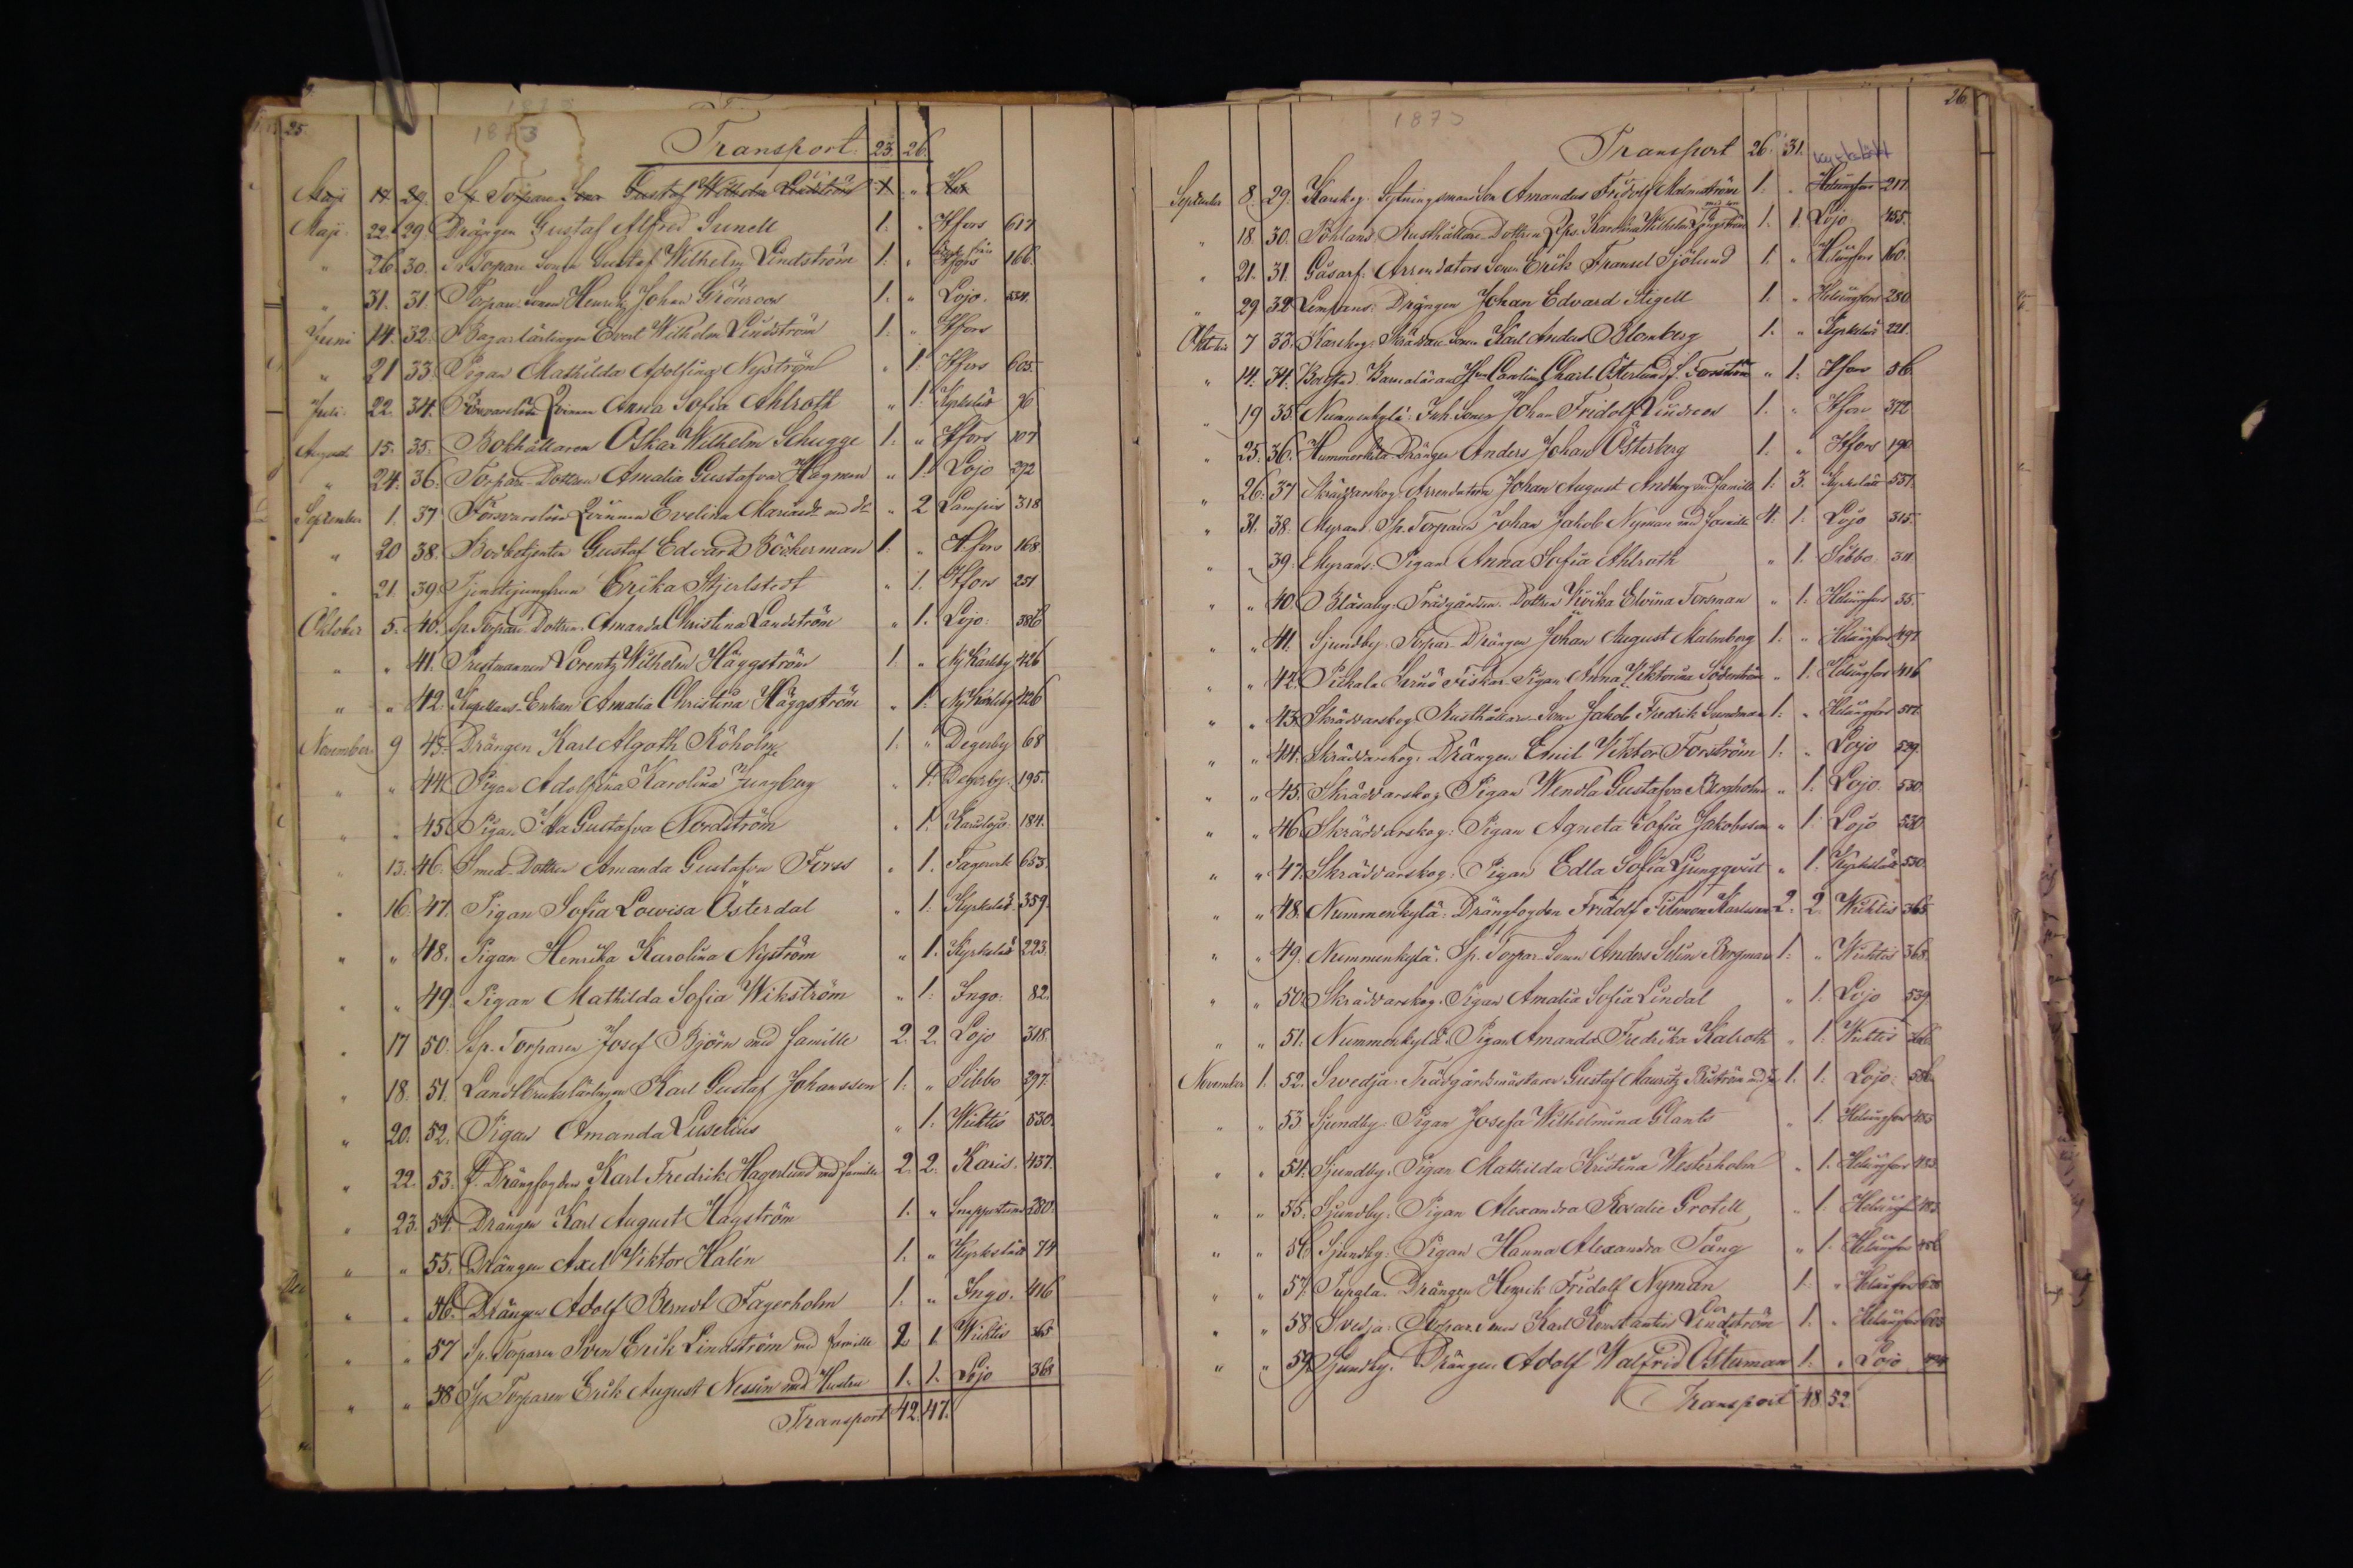 25.
1873
Transport. 23. 26.
Maji 17 29. Sp. Torpare Sonen Gustaf Wilhelm Lindström 1 „
Maji. 22. 29. Drängen Gustaf Alfred Sunell 1. „ Hfors 617
„ 26. 30. Sp. Torpare Sonen Gustaf Wilhelm Lindström 1. „ Hfors 166.
„ 31. 31. Torpare Sonen Henrik Johan Grönroos 1. „ Lojo. 554.
Juni 14. 32. Bagarlärlingen Evert Wilhelm Lindström 1. „ Hfors
„ 21 33. Pigan Mathilda Adolfina Nyström „ 1. Hfors 605.
Juli. 22. 34. Försvarslösa Qvinnan Anna Sofia Ahlroth „ 1. Kyrkslät 76
Augusti 15. 35. Bokhållaren Oskar Wilhelm Schugge 1. „ Hfors 107
„ 24. 36. Torpare Dottren Amalia Gustafva Hagman „ 1. Lojo 392
September 1. 37 Försvarslösa Qvinnan Evelina „ 2 Lampis 318
„ 20 38. Bodbetjenten Gustaf Edvard Böckerman 1. „ Hfors 168
„ 21. 39. Tjenstejungfrun Erika Stjerlstedt „ 1. Hfors 251
Oktober 5. 40. Sp. Torpare Dottren Amanda Christina Landström „ 1. Lojo. 586
„ „ 41. Prestmannen Lorentz Wilhelm Häggström 1. „ Ny Karleby 426
„ „ 42. Kapellans-Enkan Amalia Christina Häggström „ 1. Ny Karleby 426
November 9 43. Drängen Karl Algoth Röholm 1. „ Degerby 68
„ „ 44. Pigan Adolfina Karolina Ljungberg „ 1. Degerby. 195.
„ „ 45. Pigan Ida Gustafva Nordström „ 1. Karislojo. 184.
„ 13. 46. Smed-Dottren Amanda Gustafva Forss „ 1. Fagervik 653.
„ 16. 47. Pigan Sofia Lowisa Österdal „ 1. Kyrkslät. 359.
„ „ 48. Pigan Henrika Karolina Nyström „ 1. Kyrkslät 223.
„ „ 49. Pigan Mathilda Sofia Wikström „ 1. Ingo. 82.
„ 17 50. Sp. Torparen Josef Björn med familie 2. 2. Lojo 318.
„ 18. 51. Landtbrukslärlingen Karl Gustaf Johansson 1. „ Sibbo 397.
„ 20. 52. Pigan Amanda Luselius „ 1. Wichtis 530.
„ 22. 53. f. Drängfogden Karl Fredrik Hagerlund med familie 2. 2. Karis. 437.
„ 23. 54. Drängen Karl August Hagström 1. „ Snappertuna 280.
„ „ 55. Drängen Axel Viktor Halén 1. „ Kyrkslätt 74
„ „ 56. Drängen Adolf Berndt Fagerholm 1. „ Ingo. 416
„ „ 57 Sp. Torparen Sven Erik Lindström med familie 2 1. Wichtis 365
„ „ 58 Sp. Torparen Erik August Nessin med Hustru 1. 1. Lojo 368
Transport 42. 47.
26.
1873
Transport 26. 31.
September 8. 29. Karskog. Sexman Son Amandus Fridolf Malmström 1. „ Helsingfors 217.
„ 18. 30. Pöhland. Rusthållare-Dottren Karolina Wilhelm. Ljungström 1. 1. Lojo. 455.
„ 21. 31. Gåsarf. Arrendators Sonen Erik Fransel Sjölund 1. „ Helsingfors 160.
„ 29 32. Lempans. Drängen Johan Edvard Stigell 1. „ Helsingfors 280
Oktober 7 33. Karskog. Skräddare Sonen Karl Andas Blomberg 1. „ Kyrkslät 221.
„ 14. 34. Bolstad. Carolina Charl. Österlund f. Forsström „ 1. Hfors 36
„ 19 35. Nummenkylä. Inh. Sonen Johan Fridolf Lindroos 1. „ Hfors 372
„ 25. 36. Hummerkila. Drängen Anders Johan Österberg 1. „ Hfors 190
„ 26. 37 Skräddarskog. Arrendatorn Johan August Andberg med familie 1. 3. Kyrkslätt 537.
„ 31. 38. Myrans. Sp. Torparen Johan Jakob Nyman med familie 4. 1. Lojo 315.
„ „ 39. Myrans. Pigan Anna Sofia Ahlroth „ 1. Sibbo. 311.
„ „ 40. Blåsaby. Trädgårdsm. Dottren Vivika Elvina Forsman „ 1. Helsingfors 35.
„ „ 41. Sjundby. Torpar-Drängen Johan August Malmberg 1. „ Helsingfors 497.
„ „ 42. Pickala Fiskar-Pigan Anna Viktorina Söderström „ 1. Helsingfors 416
„ „ 43. Skräddarskog. Rusthållare-Sonen Jakob Fredrik Sundman 1. „ Helsingfors 517.
„ „ 44. Skräddarskog. Drängen Emil Viktor Forström 1. „ Lojo 529.
„ „ 45. Skräddarskog Pigan Wendla Gustafva Bergholm „ 1. Lojo. 530.
„ „ 46. Skräddarskog. Pigan Agneta Sofia Jakobsson „ 1. Lojo 530.
„ „ 47. Skräddarskog. Pigan Edla Sofia Ljungqvist „ 1. Kyrkslätt 530.
„ „ 48. Nummenkylä. Drängfogden Fridolf Filemon Karlsson 2. 2. Wichtis 365
„ „ 49. Nummenkylä. Sp. Torpar-Sonen Anders Selim Bergman 1. „ Wichtis 368.
„ „ 50. Skräddarskog. Pigan Amalia Sofia Lindal „ 1. Lojo 539.
„ „ 51. Nummenkylä. Pigan Amanda Fredrika Kalroth „ 1. Wichtis
November 1. 52. Svedja. Trädgårdsmästaren Gustaf Mauritz Biström 1. 1. Lojo.
„ „ 53 Sjundby. Pigan Josefa Wilhelmina Glants „ 1. Helsingfors 483
„ „ 54. Sjundby. Pigan Mathilda Kristina Westerholm „ 1. Helsingfors 483.
„ „ 55. Sjundby. Pigan Alexandra Rosalie Grotell „ 1. Helsingf. 483.
„ „ 56. Sjundby. Pigan Hanna Alexandra Tång „ 1. Helsingfors 456
„ „ 57. Drängen Henrik Fridolf Nyman 1. „ Helsingfors
„ „ 58 Svedja. Torpare Sonen Karl Konstantin Lindström 1. „ Helsingfors 603
„ „ 59. Sjundby. Drängen Adolf Walfrid Österman 1. „ Lojo
Transport 48. 52.